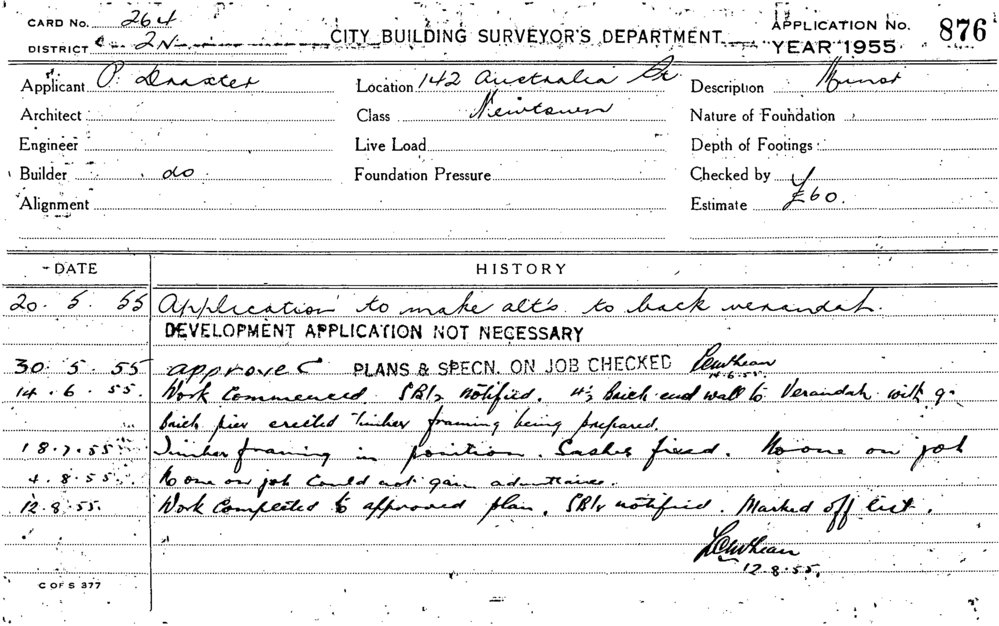 CARD No. 264
DISTRICT 2N
CITY BUILDING SURVEYOR'S DEPARTMENT
APPLICATION No. 876
YEAR 1955
Applicant P. Draxter
Location 142 Australia St
Description Minor
Architect
Class Newtown
Nature of Foundation
Engineer
Live Load
Depth of Footings
Builder do
Foundation Pressure
Checked by
Alignment
Estimate £60.
DATE HISTORY
20. 5. 55 Application to make alt's to back verandah.
DEVELOPMENT APPLICATION NOT NECESSARY
30. 5. 55 approved PLANS & SPECN. ON JOB CHECKED
14.6.55
14. 6. 55 Work Commenced. notified. 4½ Brick end wall to Verandah with 9"
Brick pier erected timber framing being prepared.
18.7.55 Timber framing in position. Sashes fixed. No one on job
4.8.55 No one on job could not gain admittance.
12.8.55. Work Completed to approved plan. notified. Marked off list.
12.8.55.
C OF S 377